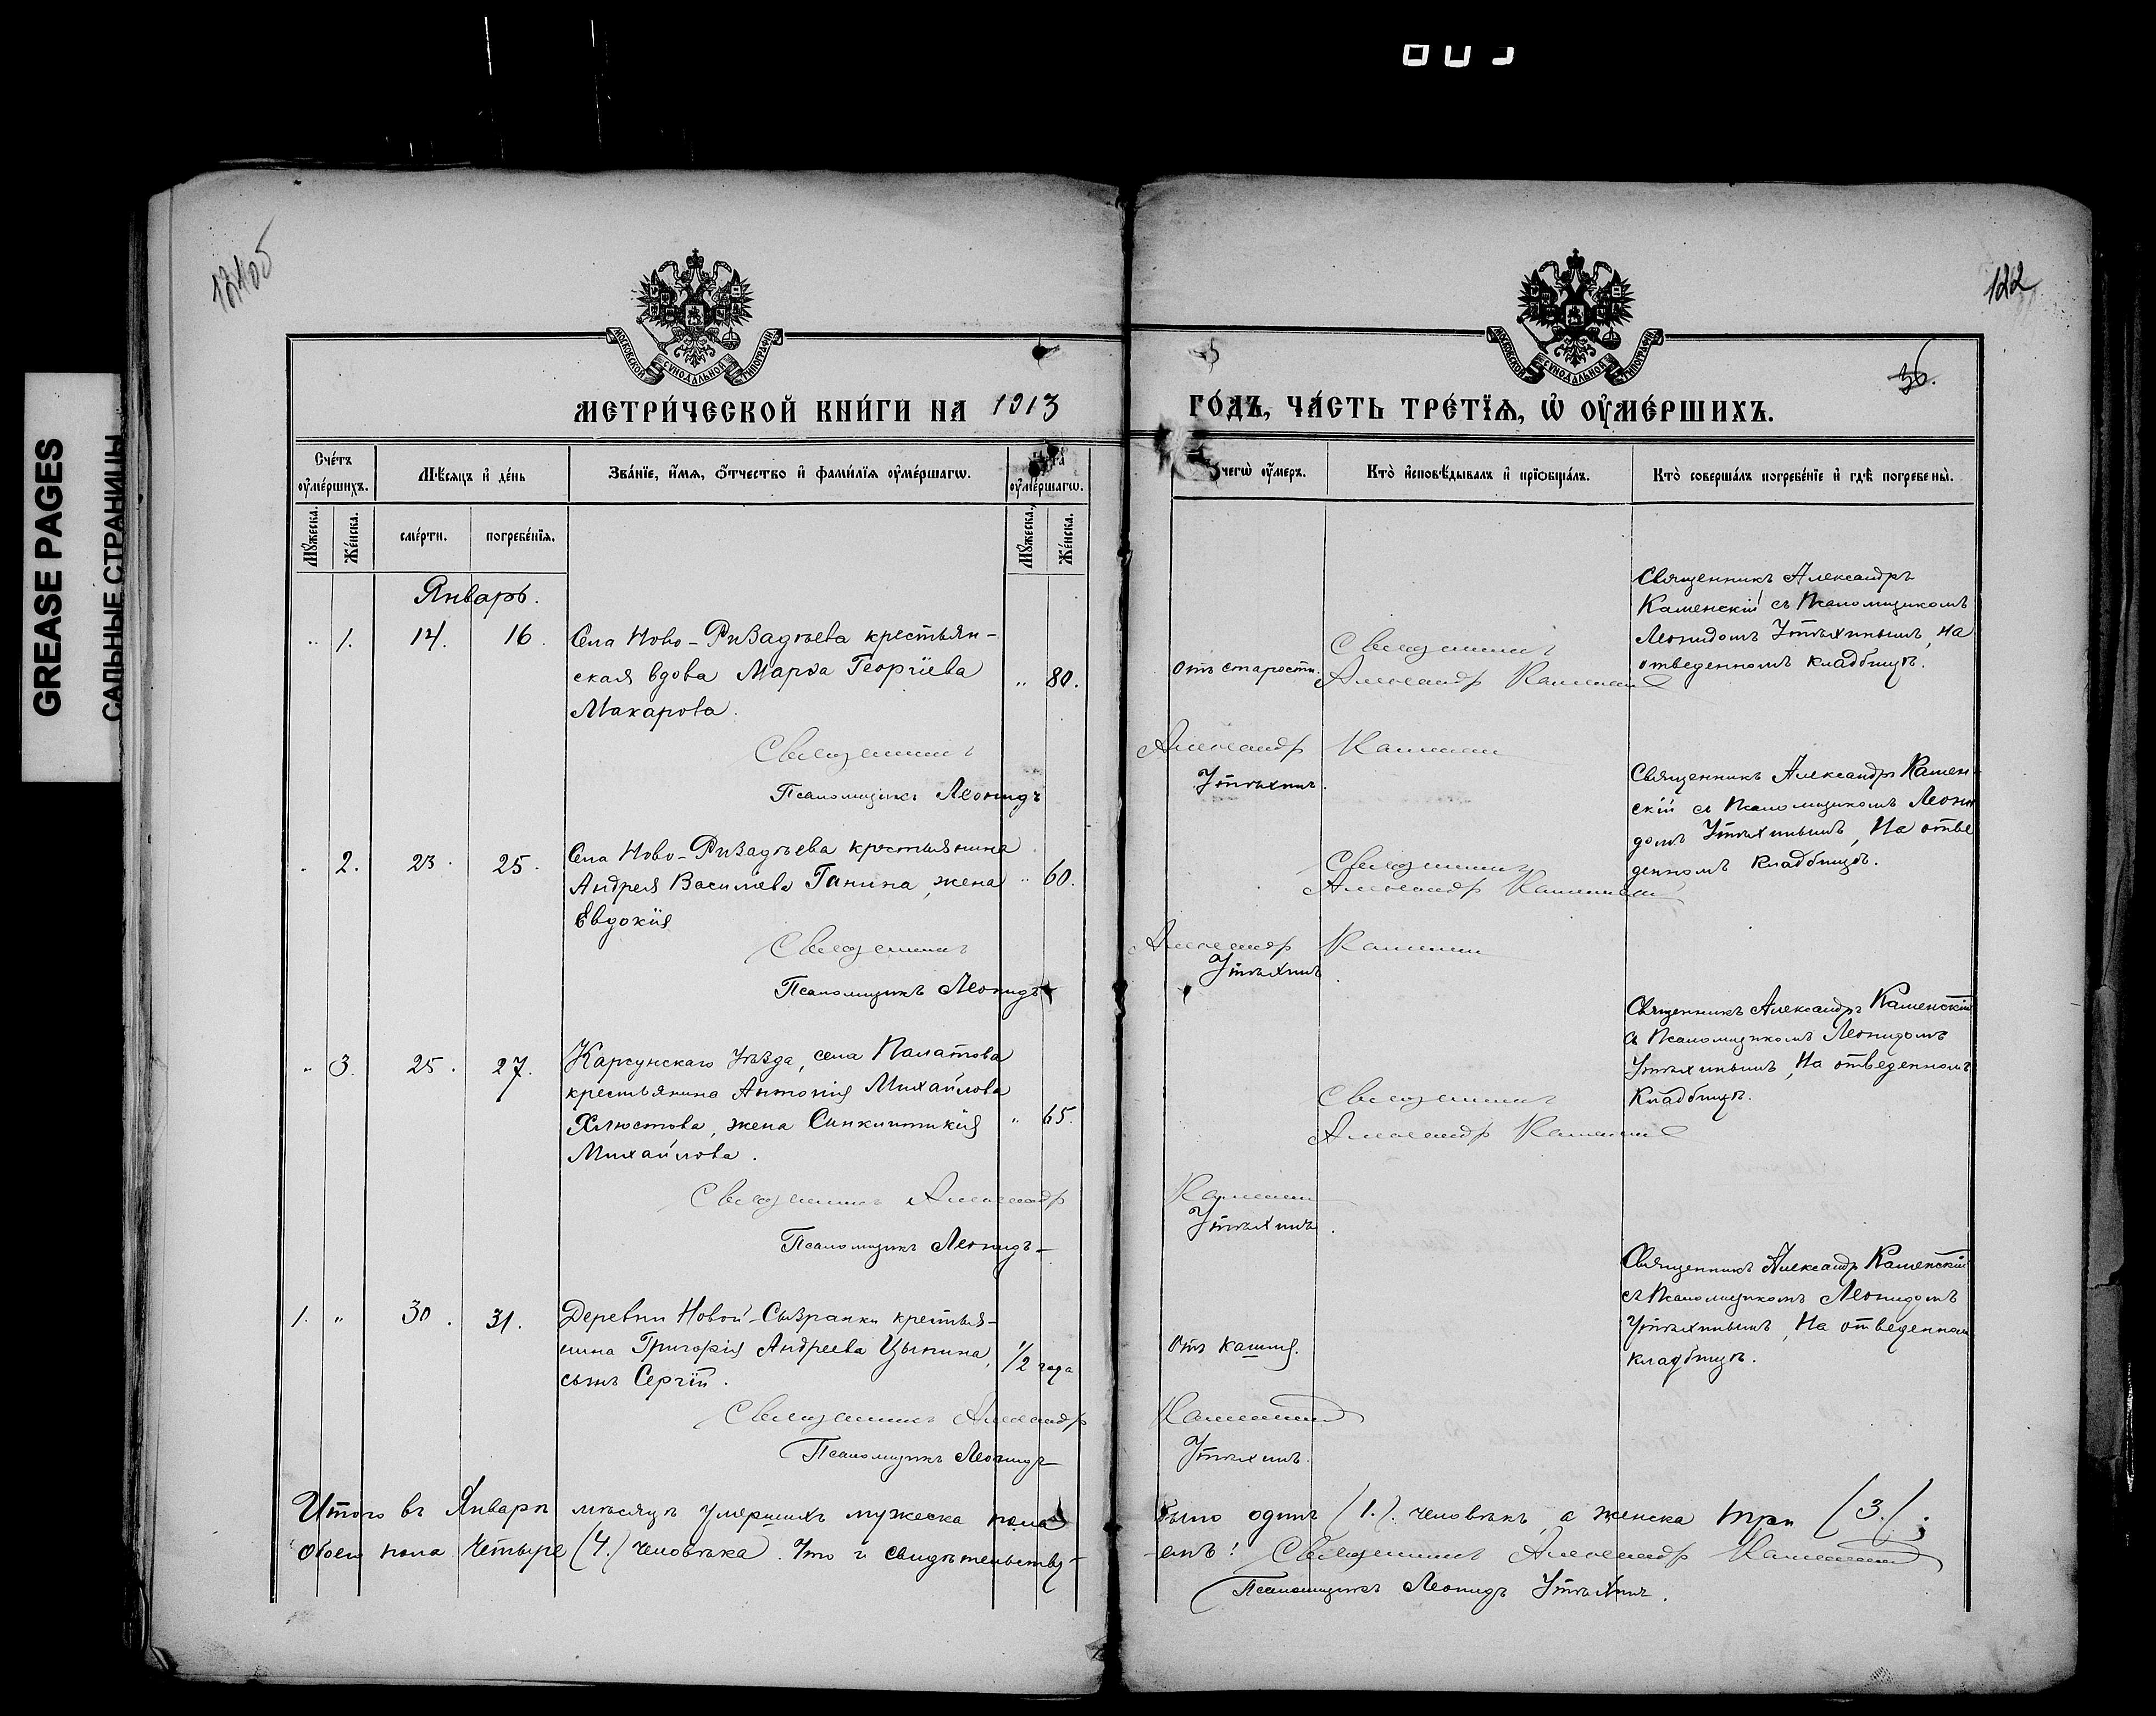 GREASE PAGES
САЛЬНЫЕ СТРАНИЦЫ
122
36.
МОСКОВСКОЙ СѴНОДАЛЬНОЙ ТИПОГРАФІИ
МОСКОВСКОЙ СѴНОДАЛЬНОЙ ТИПОГРАФІИ
МЕТРИ́ЧЕСКОЙ КНИ́ГИ НА 1913
ГО́ДЪ, ЧА́СТЬ ТРЕ́ТЇѦ, Ѡ҆ ОУ҆МЕ́РШИХЪ.
Сче́тъ оу҆ме́ршихъ.
Мѣ́сяцъ и҆ де́нь
Зва́нїе, и҆́мѧ, о҆́тчество и҆ фами́лїѧ оу҆ме́ршагѡ.
оу҆ме́ршагѡ.
чегѡ̀ оу҆́меръ.
Кто̀ и҆сповѣ́дывалъ и҆ прїѡбща́лъ.
Кто̀ соверша́лъ погребе́нїе и҆ гдѣ̀ погребены̀.
Мꙋ́жеска.
Же́нска.
сме́рти.
погребе́нїѧ.
Мꙋ́жеска.
Же́нска.
Январь.
" 1. 14. 16. Села Ново-Ризадѣева крестьян-
ская вдова Марѳа Георгіева
Макарова.
" 80.
Отъ старости.
Священникъ
Александр Каменский
Священникъ Александръ
Каменскій съ Псаломщикомъ
Леонидомъ Утѣхинымъ, На
отведенномъ кладбищѣ.
Священникъ Александр Каменский
Псаломщикъ Леонидъ Утѣхинъ.
" 2. 23. 25. Села Ново-Ризадѣева крестьянина
Андрея Василіева Ганина, жена
Евдокія
" 60.
Священникъ
Александр Каменский
Священникъ Александръ Камен-
скій съ Псаломщикомъ Леони
домъ Утѣхинымъ, На отве
денномъ кладбищѣ.
Священникъ Александр Каменский
Псаломщикъ Леонидъ Утѣхинъ.
" 3. 25. 27. Карсунскаго Уѣзда, села Палатова
крестьянина Антонія Михайлова
Хлюстова, жена Синклитикія
Михайлова.
" 65.
Священникъ
Александр Каменский
Священникъ Александръ Каменскій
съ Псаломщикомъ Леонидомъ
Утѣхинымъ, На отведенномъ
Кладбищѣ.
Священникъ Александр Каменский
Псаломщикъ Леонидъ Утѣхинъ.
1. " 30. 31. Деревни Новой-Сызранки крестья-
нина Григорія Андреева Цынина,
сынъ Сергій.
1/2 года
Отъ кашля.
Священникъ Александръ Каменскій
съ Псаломщикомъ Леонидомъ
Утѣхинымъ, На отведенном
кладбищѣ.
Священникъ Александр Каменский
Псаломщикъ Леонидъ Утѣхинъ.
Итого въ Январѣ мѣсяцѣ умершихъ мужеска пола было одинъ (1.). человѣкъ, а женска три (3.);
обоего пола четыре (4.) человѣка. Что и свидѣтельству-
емъ: Священникъ Александр Каменский
Псаломщикъ Леонидъ Утѣхинъ.